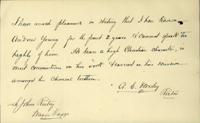 I have much pleasure in stating that I have known
Andrew Young for the past 2 years & cannot speak too
highly of him. He bears a high Christian character, is
most conscientious in his work & earnest in his mission
amongst his Chinese brethren.
A. E.
St John